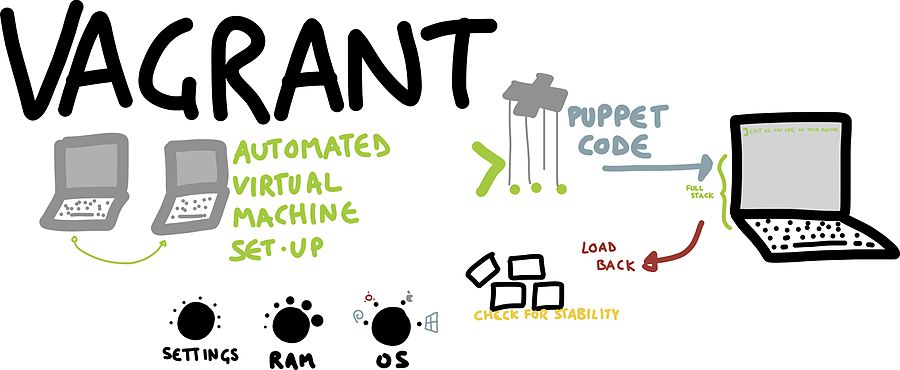 VAGRANT
AUTOMATED
VIRTUAL
MACHINE
SET-UP
PUPPET
CODE
EDIT AS YOU LIKE, ON YOUR MACHINE
FULL
STACK
LOAD
BACK
CHECK FOR STABILITY
SETTINGS
RAM
OS